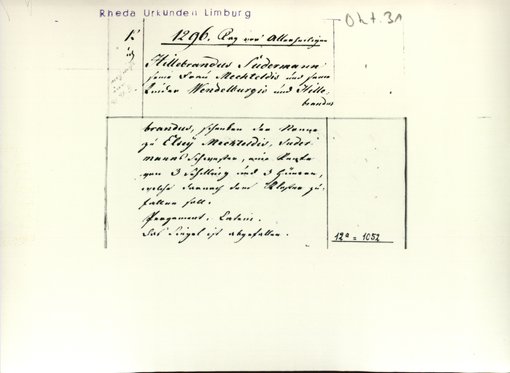 Rheda Urkunden Limburg
Okt. 31
12
1296. Tag vor Allerheiligen
Hillebrandus Sudermann
seine Frau Mechteldis und seine
Kinder Wendelburgis und Hille-
brandus
brandus, schenken der Nonne
zu Elsey Mechteldis, Suder-
manns Schwester, eine Rente
von 3 Schilling und 3 Hünern,
welche darnach dem Kloster zu-
fallen soll.
Pergament. Latein.
Das Siegel ist abgefallen.
12a = 1052